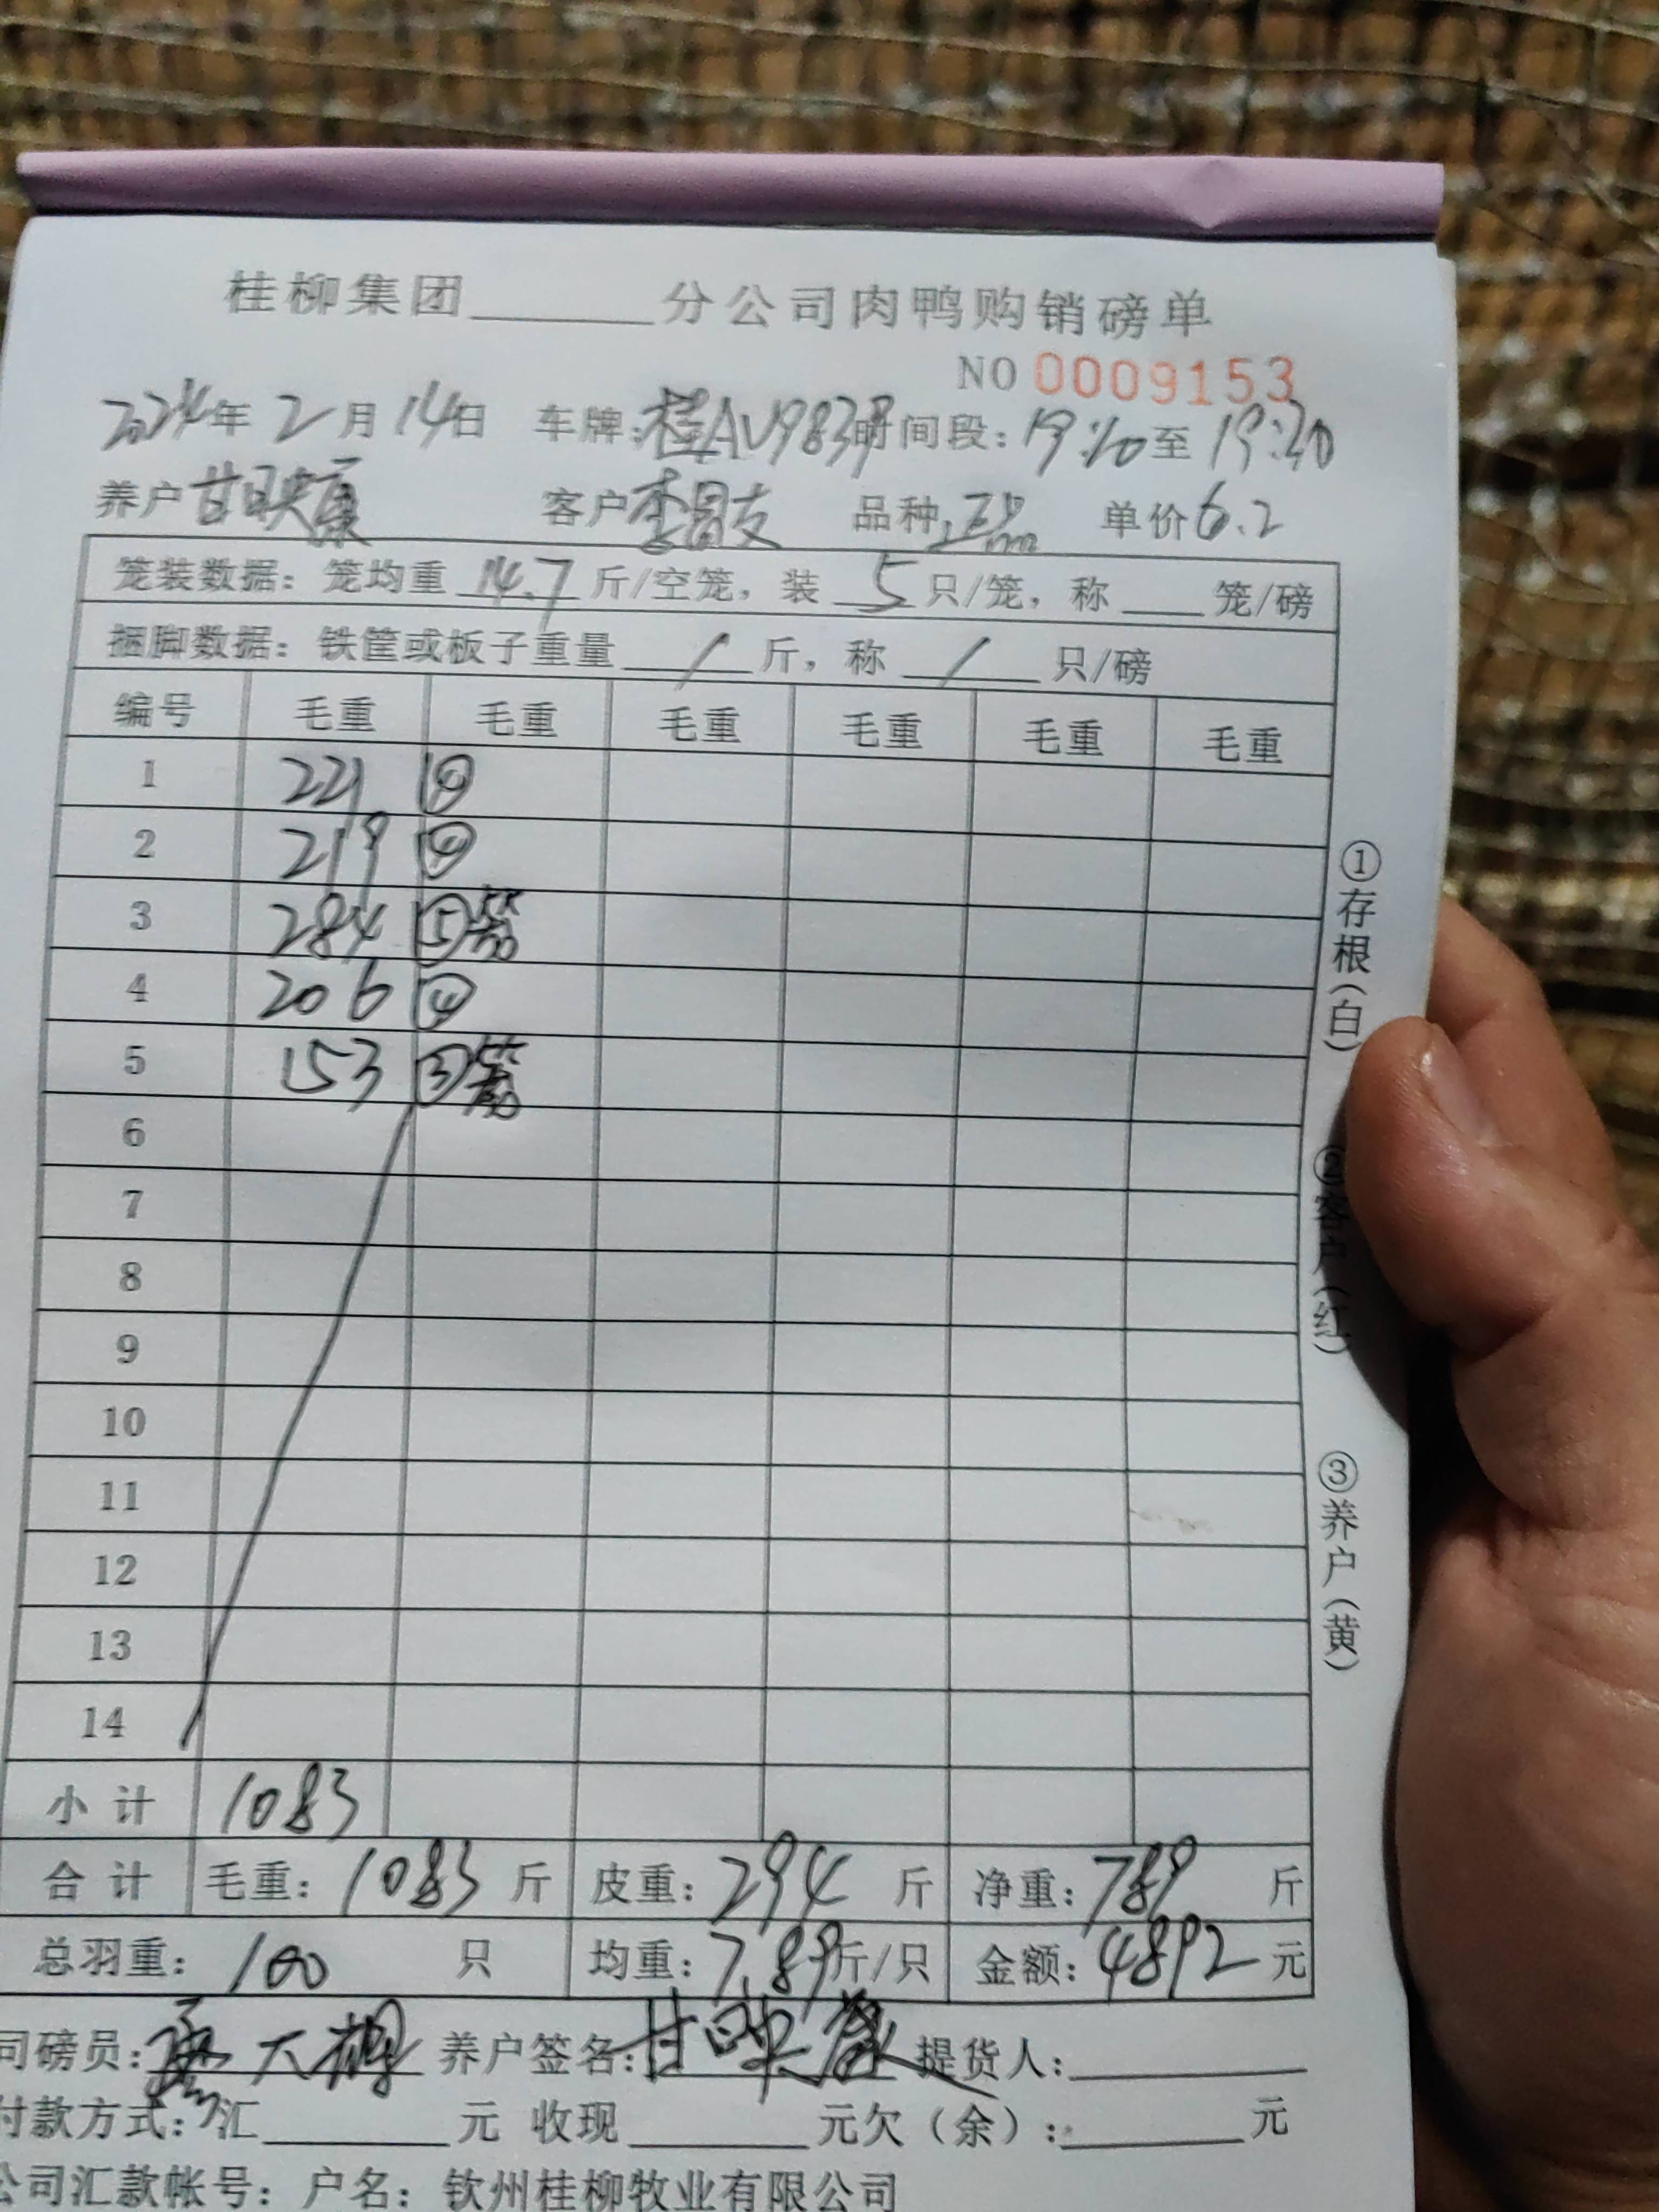 桂柳集团______分公司肉鸭购销磅单
NO 0009153
2024年 2月 14日 车牌:桂AV9839 时间段:19:20至19:30
养户甘映康 客户李昌支 品种 正品 单价6.2
笼装数据:笼均重 14.7 斤/空笼,装 5 只/笼,称____笼/磅
捆脚数据:铁筐或板子重量 / 斤,称 / 只/磅
编号 毛重 毛重 毛重 毛重 毛重 毛重
1 221 ④
2 219 ④
3 284 ⑤笼
4 206 ④
5 153 ③笼
6
7
8
9
10
11
12
13
14
小计 1083
合计 毛重:1083斤 皮重:294斤 净重:789斤
总羽重:100只 均重:7.89斤/只 金额:4892元
司磅员: 养户签名:甘映康 提货人:______
付款方式:汇______元 收现______元欠(余):______元
公司汇款帐号:户名:钦州桂柳牧业有限公司
①存根(白)
②客户(红)
③养户(黄)